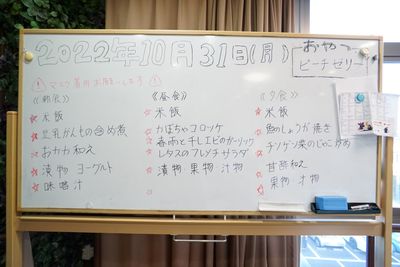 2022年10月31日(月)
おやつ
ピーチゼリー
! マスク着用お願いします !
《朝食》
☆米飯
☆豆乳がんもの含め煮
☆おカカ和え
☆漬物 ヨーグルト
☆味噌汁
《昼食》
☆米飯
☆かぼちゃコロッケ
☆春雨と干しエビのガーリック
☆レタスのフレンチサラダ
☆漬物 果物 汁物
《夕食》
☆米飯
☆魚のしょうが焼き
☆チンゲン菜のじゃこ炒め
☆甘酢和え
☆果物 汁物